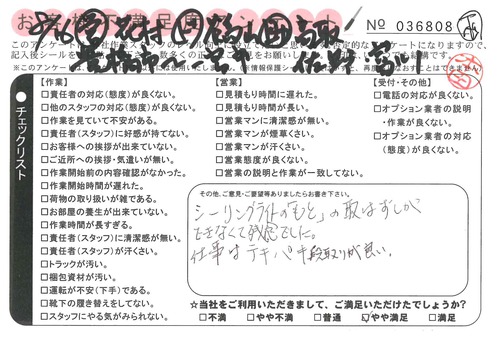 お客様不満足度アンケート
No 036808
【作業】
□責任者の対応(態度)が良くない。
□他のスタッフの対応(態度)が良くない。
□作業を見ていて不安がある。
□責任者(スタッフ)に好感が持てない。
□お客様への挨拶が出来ていない。
□ご近所への挨拶・気遣いが無い。
□作業開始前の内容確認がなかった。
□作業開始時間が遅れた。
□荷物の取り扱いが雑である。
□お部屋の養生が出来ていない。
□作業時間が長すぎる。
□責任者(スタッフ)に清潔感が無い。
□責任者(スタッフ)が汗くさい。
□トラックが汚い。
□梱包資材が汚い。
□運転が不安(下手)である。
□靴下の履き替えをしてない。
□スタッフにやる気がみられない。
【営業】
□見積もり時間に遅れた。
□見積もり時間が長い。
□営業マンに清潔感が無い。
□営業マンが煙草くさい。
□営業マンが汗くさい。
□営業態度が良くない。
□営業の説明と作業が一致してない。
【受付・その他】
□電話の対応が良くない。
□オプション業者の説明
・作業が良くない。
□オプション業者の対応
(態度)が良くない。
チェックリスト
その他、ご意見・ご要望等ありましたらお書き下さい。
シーリングライトの「もと」の取はずしが
できなくて残念でした。
仕事はテキパキ段取りが良い。
☆当社をご利用いただきまして、ご満足いただけたでしょうか?
□不満 □やや不満 □普通 ☑やや満足 □満足